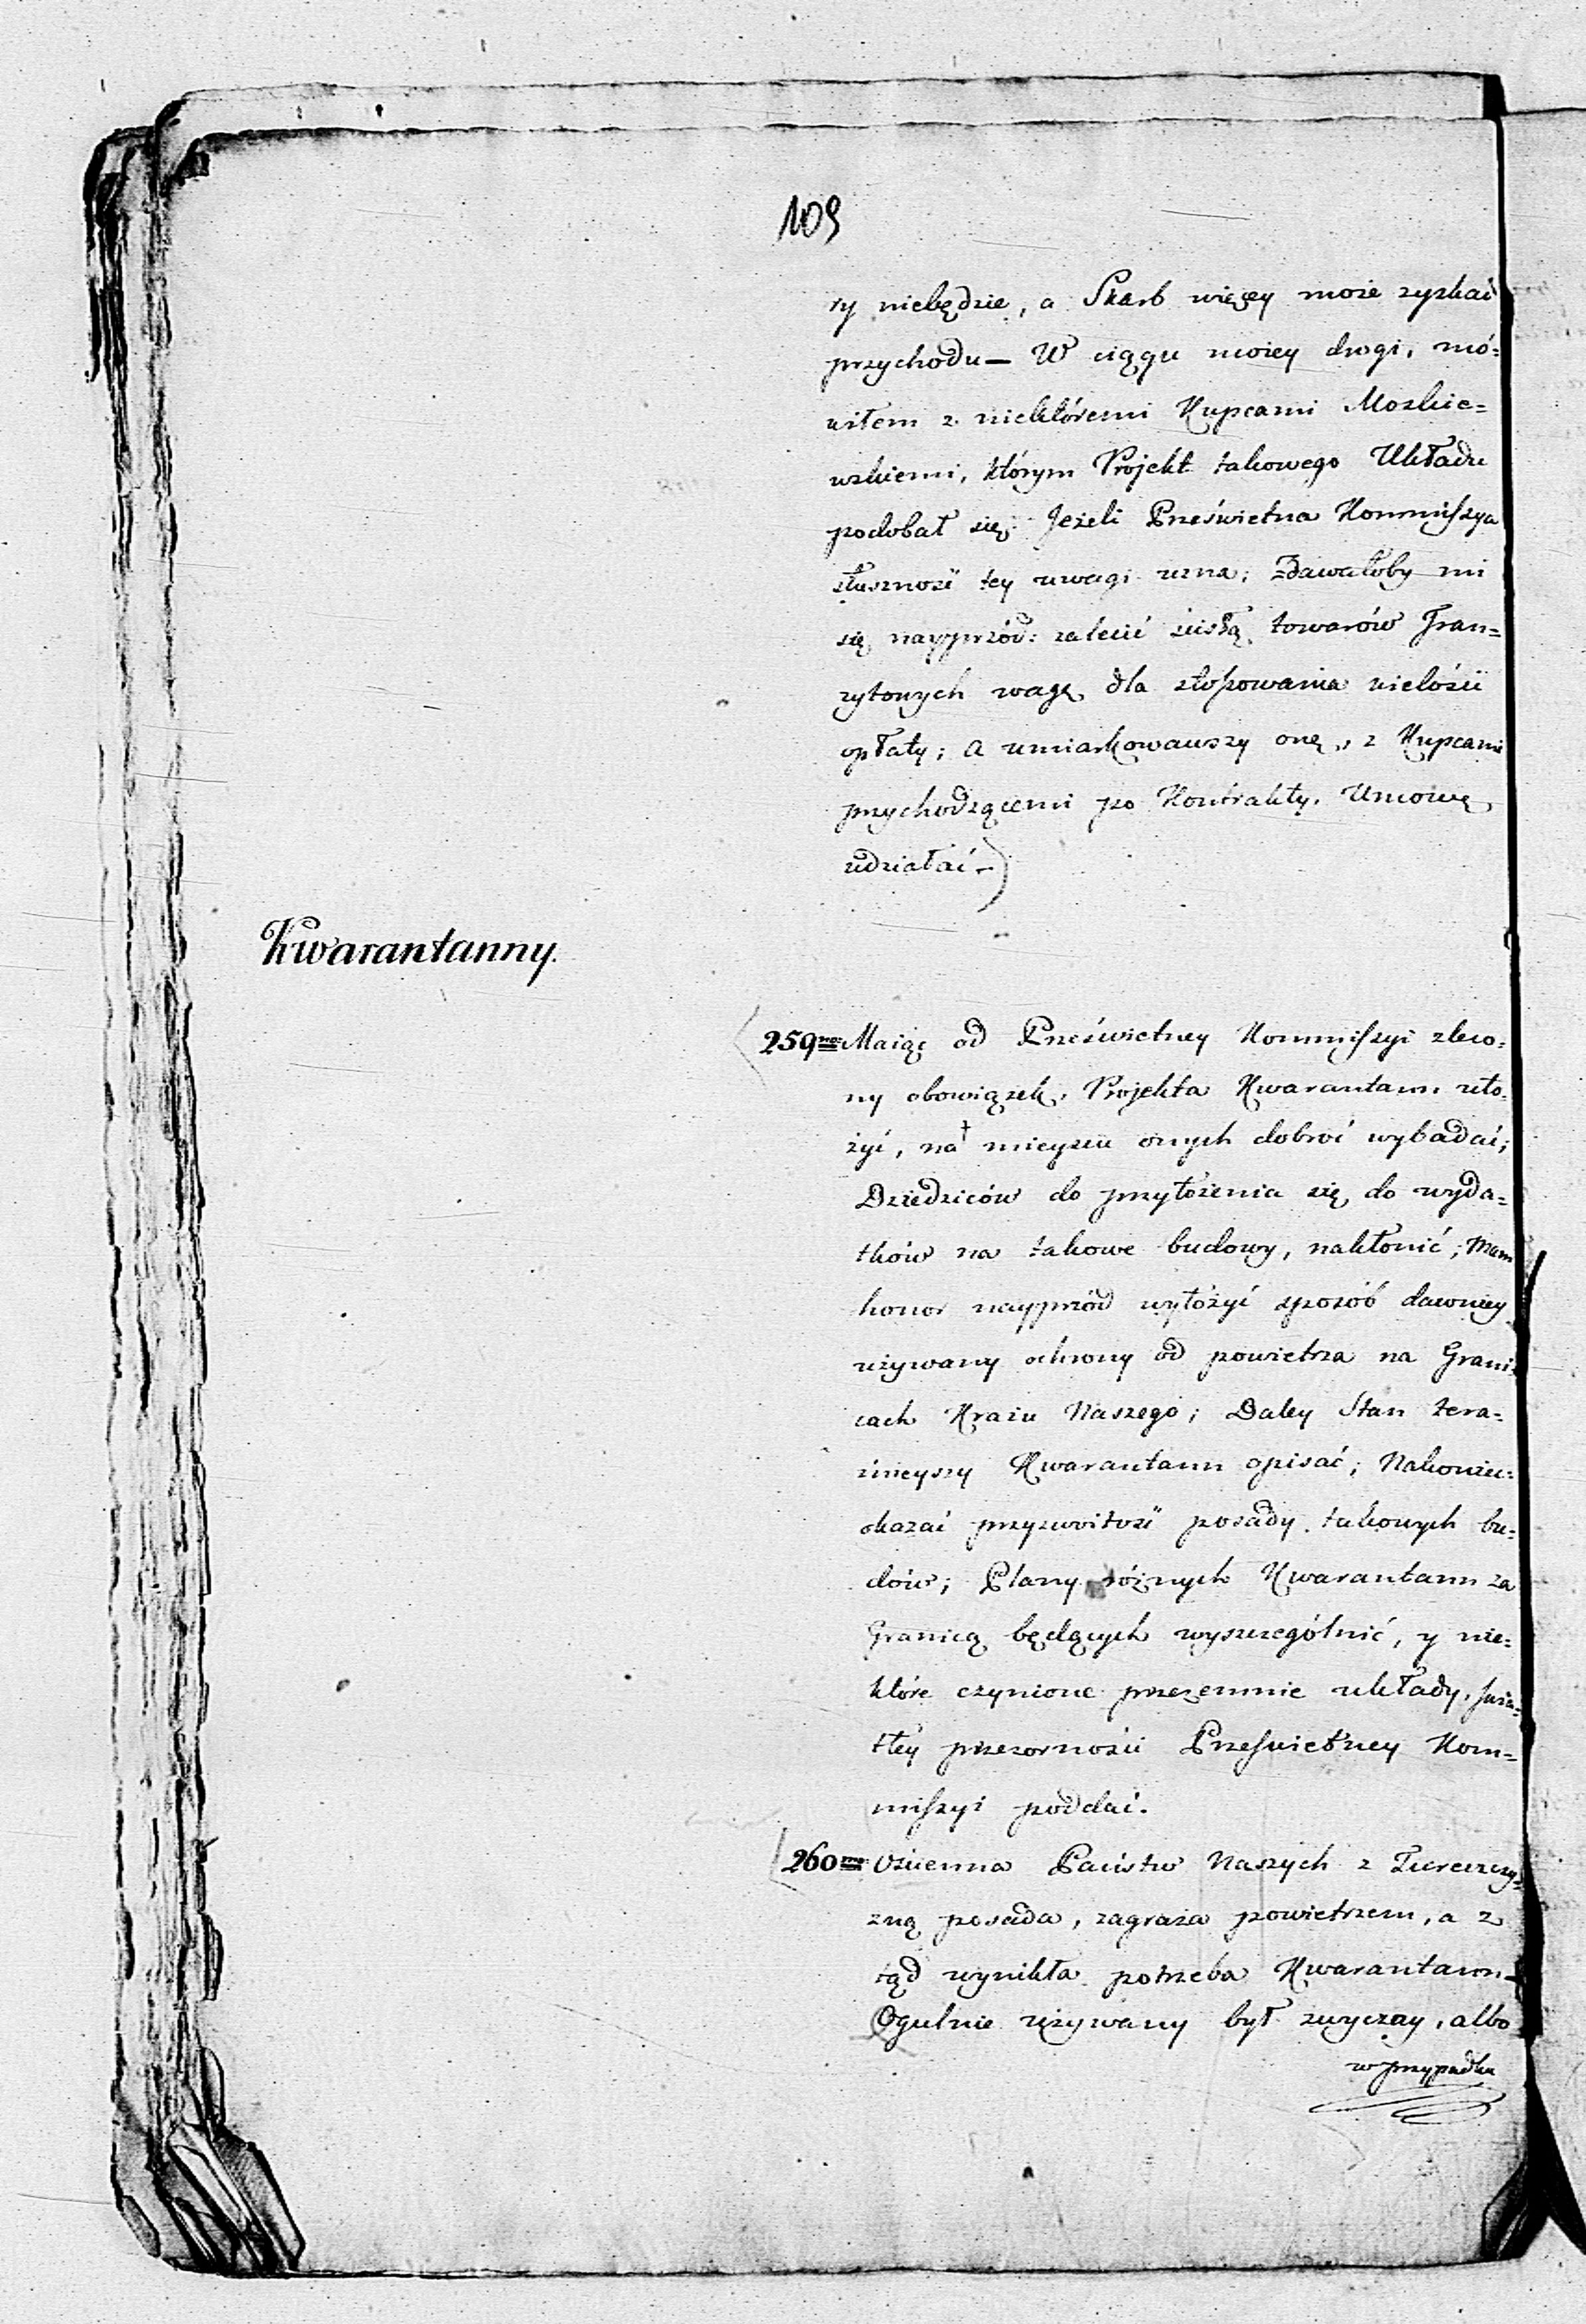 109
ry niebędzie, a Skarb więcey może zyskać
przychodu — W ciągu moiey drogi, mó=
wiłem z niektóremi Kupcami Moskie=
wskiemi, którym Projekt takowego Układu
podobał się. Jeżeli Prześwietna Kommiſsya
słusznosć tey uwagi uzna; zdawałoby mi
się nayprzód: zalecić scisłą towarów Tran=
zytowych wagę dla stosowania wielości
opłaty; a umiarkowawszy onę, z Kupcami
przychodzącemi po Kontrakty, Umowę
udziałać —)
Kwarantanny.
259no: Maiąc od Prześwietney Kommiſsyi zleco=
ny obowiązek, Projekta Kwarantann uło=
żyć, na † mieyscu onych dobroć wybadać;
Dziedziców do przyłożenia się do wyda=
tków na takowe budowy, nakłonić; Mam
honor nayprzód wyłożyć sposób dawniey
używany ochrony od powietrza na Grani=
cach Kraiu Naszego; Daley Stan tera=
źnieyszy Kwarantann opisać; Nakoniec
okazać przyzwoitość posady takowych bu=
dów; Plany różnych Kwarantann za
Granicą będących wyszczególnić, y nie=
które czynione przezemnie układy, świa=
tłey przezornosci Prześwietney Kom=
miſsyi poddać.
260mo: Ościenna Państw Naszych z Turczczy=
zną posada, zagraża powietrzem, a z
tąd wynikła potrzeba Kwarantann —
Ogulnie używany był zwyczay, albo
w przypadku